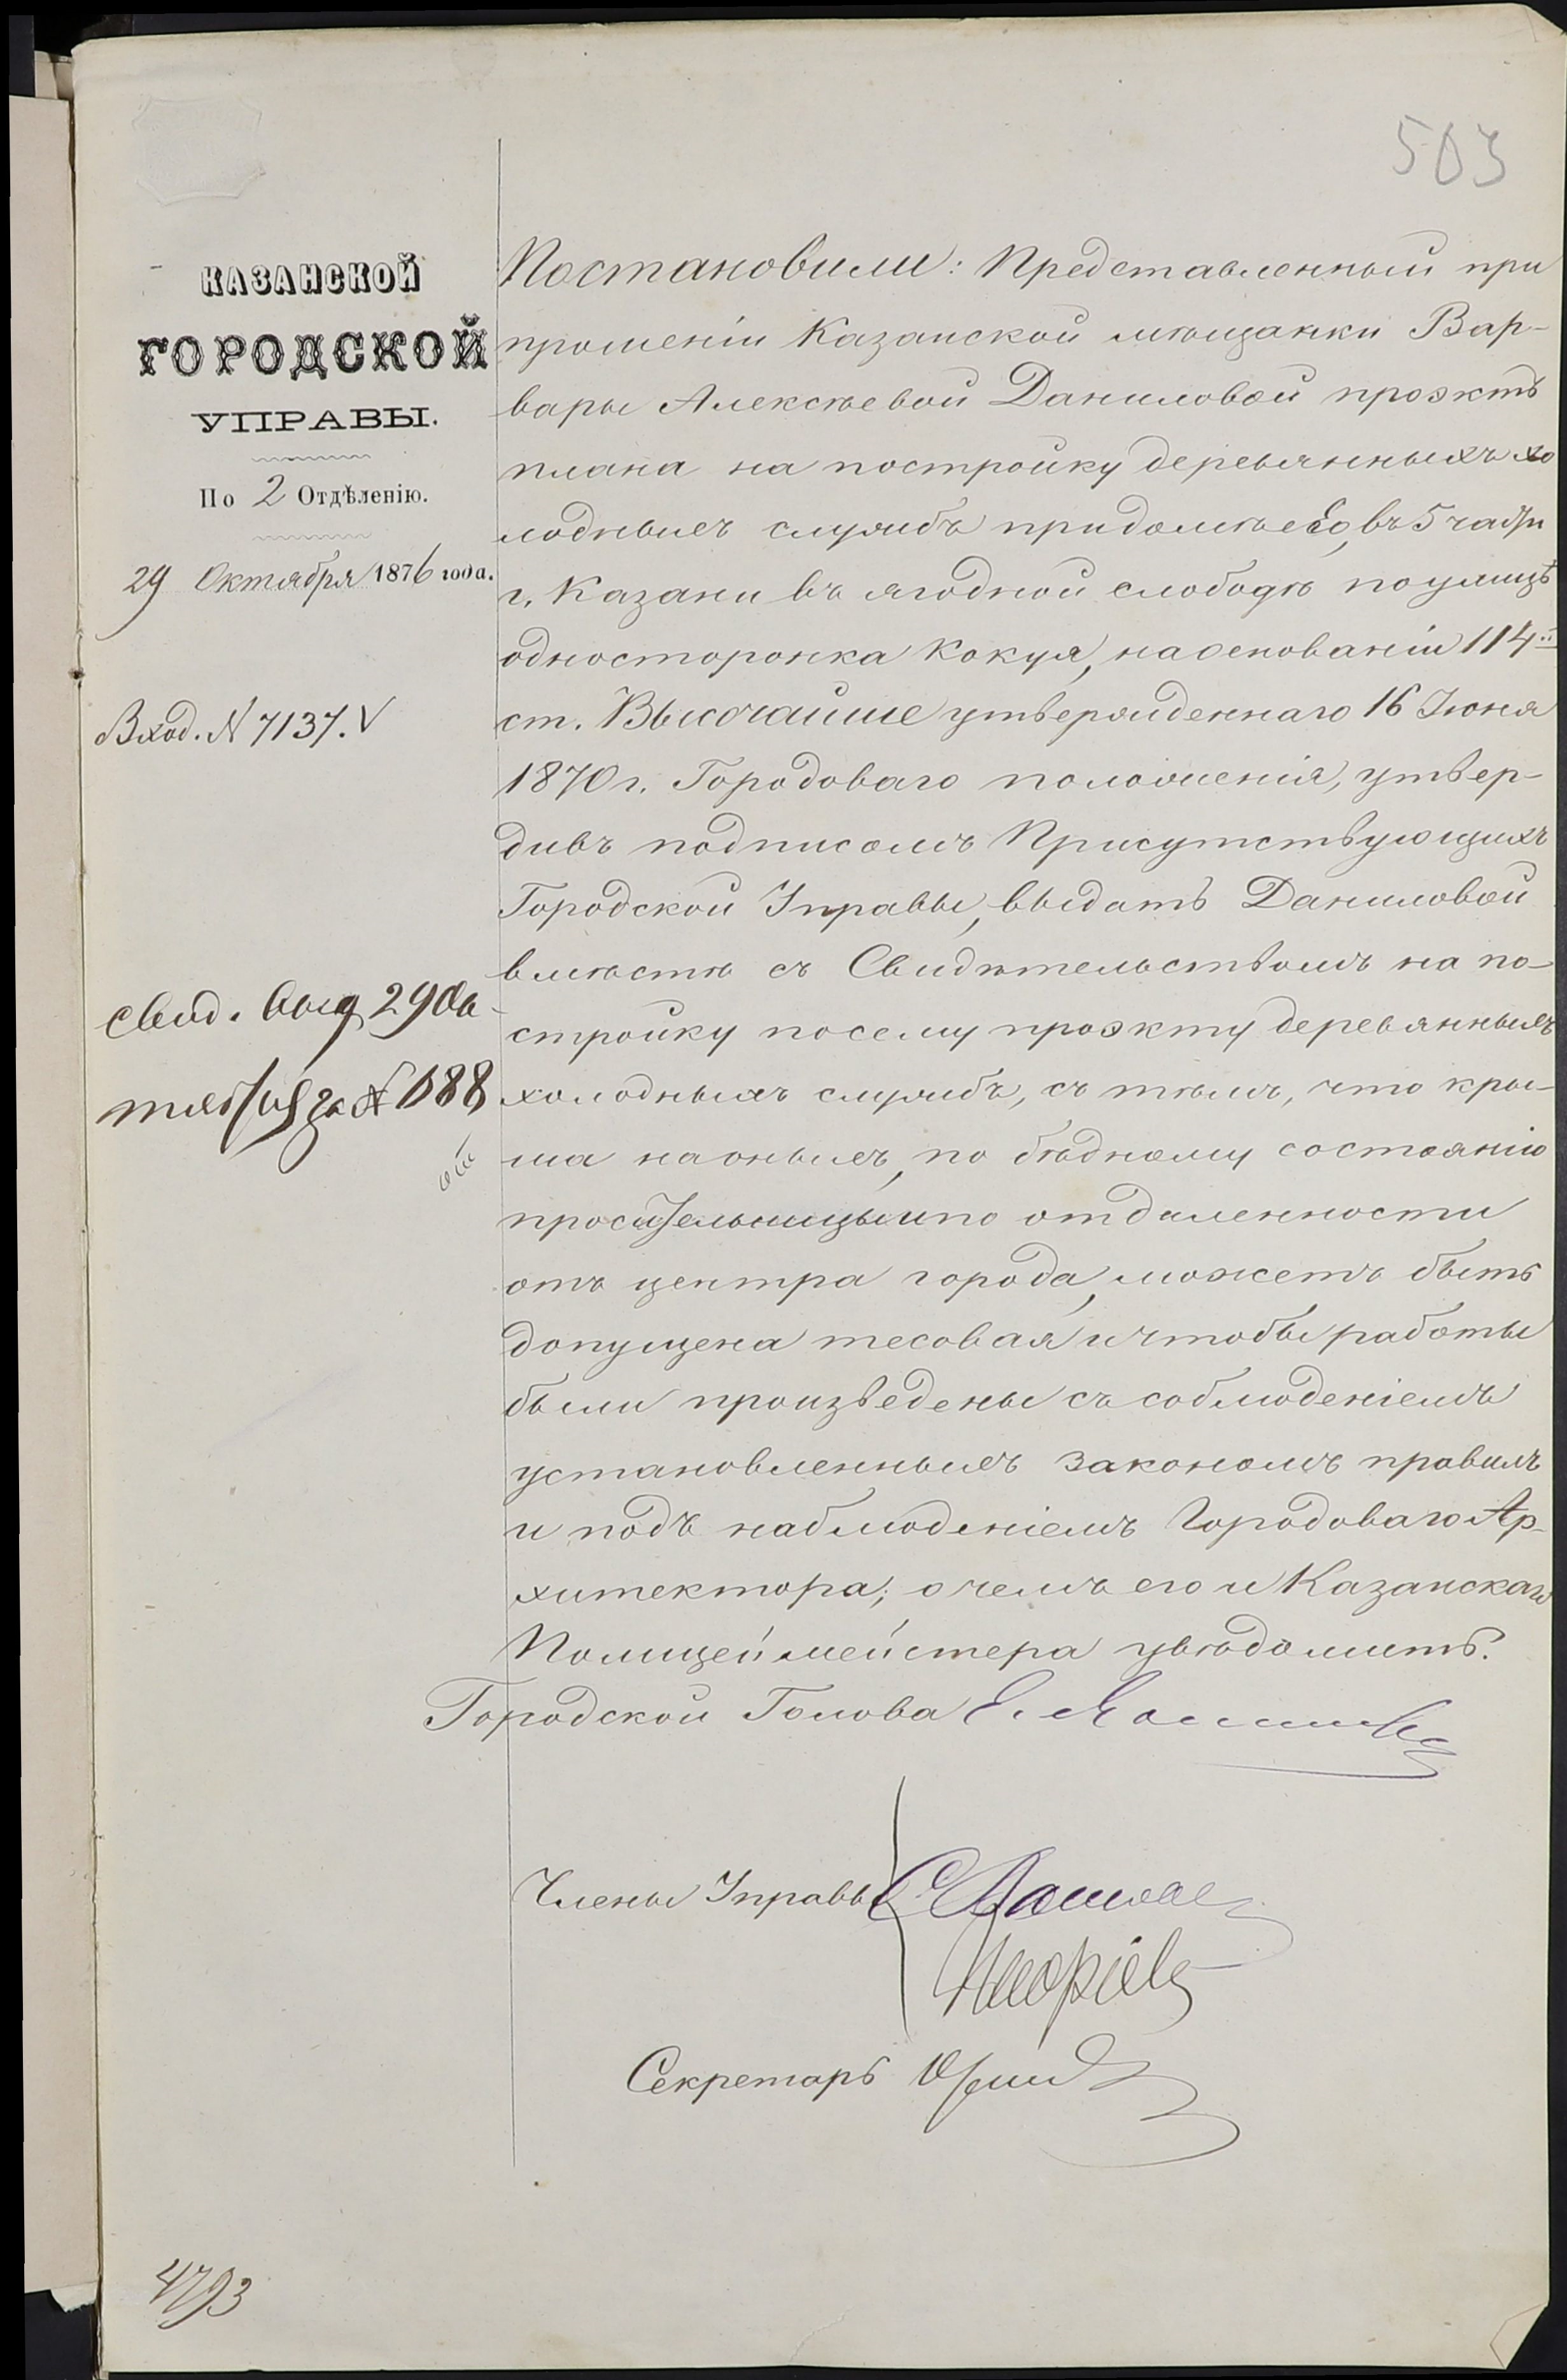 503
КАЗАНСКОЙ
ГОРОДСКОЙ
УПРАВЫ.
По 2 Отдѣленію.
29 Октября 1876 года.
Вход. N 7137. V
свид. выд 29 Ок-
тяб за № 1088
Постановили: Представленный при
прошеніи Казанской мѣщанки Вар-
вары Алексѣевой Даниловой проэктъ
плана на постройку деревянныхъ хо
лодныхъ службъ при домѣ ее, въ 5 части
г. Казани въ ягодной слободѣ по улицѣ
односторонка Кокуя, на основаніи 114й
ст. Высочайше утвержденнаго 16 Іюня
1870 г. Городоваго положенія, утвер-
дивъ подписомъ Присутствующихъ
Городской Управы, выдать Даниловой
вмѣстѣ съ Свидѣтельствомъ на по-
стройку по сему проэкту деревянныхъ
холодныхъ службъ, съ тѣмъ, что кры-
ша на оныхъ, по бѣдному состоянію
просительницы и по отдаленности
отъ центра города, можетъ быть
допущена тесовая и чтобы работы
были произведены съ соблюденіемъ
установленныхъ закономъ правилъ
и подъ наблюденіемъ Городоваго Ар-
хитектора; о чемъ его и Казанскаго
Полицеймейстера увѣдомить.
Городской Голова
Члены Управы
Секретарь
4793